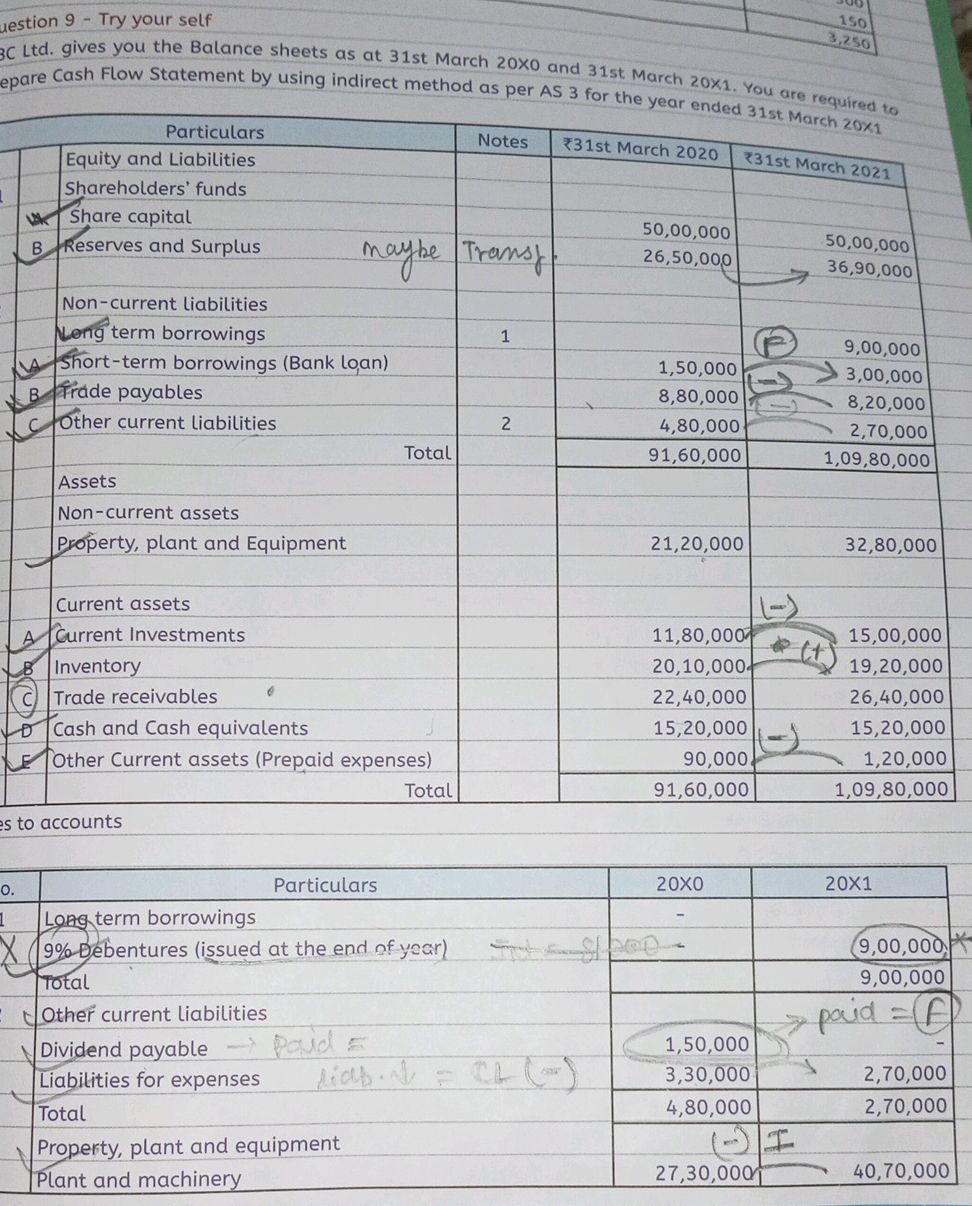 300
150
3,250
uestion 9 - Try your self
BC Ltd. gives you the Balance sheets as at 31st March 20X0 and 31st March 20X1. You are required to
epare Cash Flow Statement by using indirect method as per AS 3 for the year ended 31st March 20X1
Particulars Notes ₹31st March 2020 ₹31st March 2021
Equity and Liabilities
Shareholders' funds
A Share capital 50,00,000 50,00,000
B Reserves and Surplus maybe Transf. 26,50,000 36,90,000
Non-current liabilities
Long term borrowings 1 F 9,00,000
A Short-term borrowings (Bank loan) 1,50,000 3,00,000
B Trade payables 8,80,000 (-) 8,20,000
C Other current liabilities 2 4,80,000 (-) 2,70,000
Total 91,60,000 1,09,80,000
Assets
Non-current assets
Property, plant and Equipment 21,20,000 32,80,000
Current assets (-)
A Current Investments 11,80,000 15,00,000
B Inventory 20,10,000 (+) 19,20,000
C Trade receivables 22,40,000 26,40,000
D Cash and Cash equivalents 15,20,000 (-) 15,20,000
E Other Current assets (Prepaid expenses) 90,000 1,20,000
Total 91,60,000 1,09,80,000
es to accounts
o. Particulars 20X0 20X1
1 Long term borrowings -
X 9% Debentures (issued at the end of year) - 9,00,000 *
Total 9,00,000
Other current liabilities paid = F
Dividend payable → paid = 1,50,000 -
Liabilities for expenses Liab. ↓ = CL (-) 3,30,000 2,70,000
Total 4,80,000 2,70,000
Property, plant and equipment (-) I
Plant and machinery 27,30,000 40,70,000